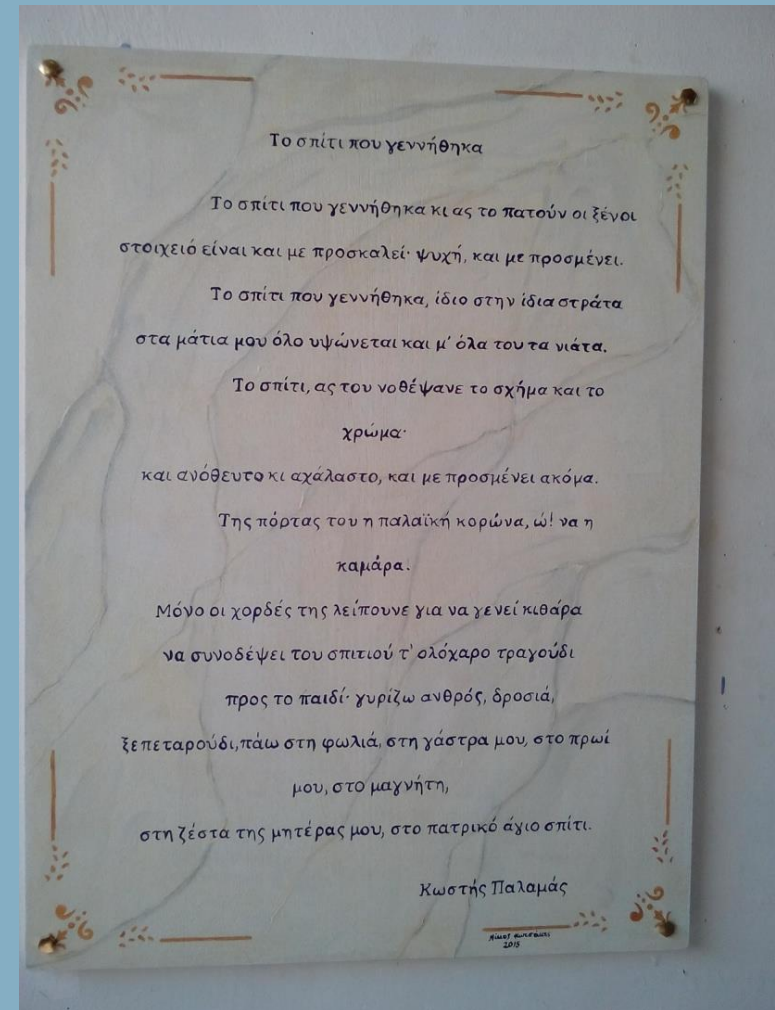 Το σπίτι που γεννήθηκα
Το σπίτι που γεννήθηκα κι ας το πατούν οι ξένοι
στοιχειό είναι και με προσκαλεί· ψυχή, και με προσμένει.
Το σπίτι που γεννήθηκα, ίδιο στην ίδια στράτα
στα μάτια μου όλο υψώνεται και μ' όλα του τα νιάτα.
Το σπίτι, ας του νοθέψανε το σχήμα και το
χρώμα·
και ανόθευτο κι αχάλαστο, και με προσμένει ακόμα.
Της πόρτας του η παλαϊκή κορώνα, ώ! να η
καμάρα.
Μόνο οι χορδές της λείπουνε για να γενεί κιθάρα
να συνοδέψει του σπιτιού τ' ολόχαρο τραγούδι
προς το παιδί· γυρίζω ανθρός, δροσιά,
ξεπεταρούδι,πάω στη φωλιά, στη γάστρα μου, στο πρωί
μου, στο μαγνήτη,
στη ζέστα της μητέρας μου, στο πατρικό άγιο σπίτι.
Κωστής Παλαμάς
2015